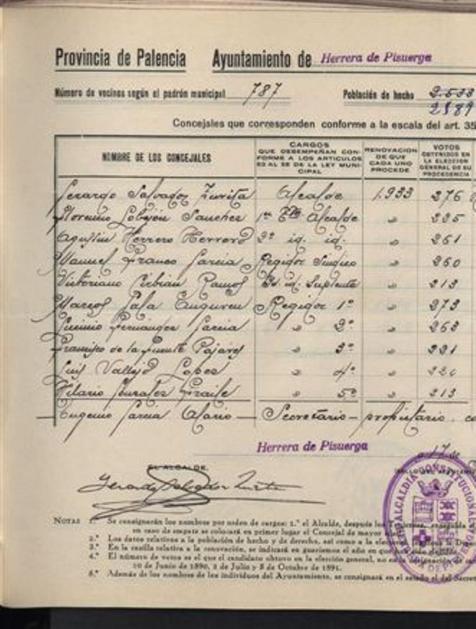 Provincia de Palencia Ayuntamiento de Herrera de Pisuerga
Número de vecinos según el padrón municipal 787 Población de hecho 2.533
Concejales que corresponden conforme a la escala del art. 35
NOMBRE DE LOS CONCEJALES CARGOS QUE DESEMPEÑAN CONFORME A LOS ARTICULOS AL DE LA LEY MUNICIPAL RENOVACIÓN DE QUE CADA UNO PROCEDE VOTOS OBTENIDOS EN LA ELECCION GENERAL DE SU PROCEDENCIA
Gerardo Salvador Zurita Alcalde 1.933 276
Florencio Sanchez 1er Alcalde " 225
Agustin Herrero Herrero 2º id. id. " 261
Manuel Franco Garcia Regidor Sindico " 260
Victoriano Cebrián Ramos Id. id Suplente " 213
Marcos Regidor 1º " 273
Fernandez Garcia " 2º " 263
Francisco de la Fuente Pajares " 3º " 221
Luis Vallejo Lopez " 4º " 220
Hilario Gonzalez Fraile " 5º " 213
Eugenio Garcia Secretario - propietario
Herrera de Pisuerga a 17 de
EL ALCALDE,
Gerardo Salvador Zurita
NOTAS 1.ª Se consignarán los nombres por orden de cargos: 1.º el Alcalde, después los
en caso de empate se colocará en primer lugar el Concejal de mayor
2.ª Los datos relativos a la población de hecho y de derecho, así como a la
3.ª En la casilla relativa a la renovación, se indicará en guarismos el año en que
4.ª El número de votos es el que el candidato obtuvo en la elección general, no
10 de Junio de 1890, 2 de Julio y 8 de Octubre de 1891.
5.ª Además de los nombres de los individuos del Ayuntamiento, se consignará en el estado el del Secretario